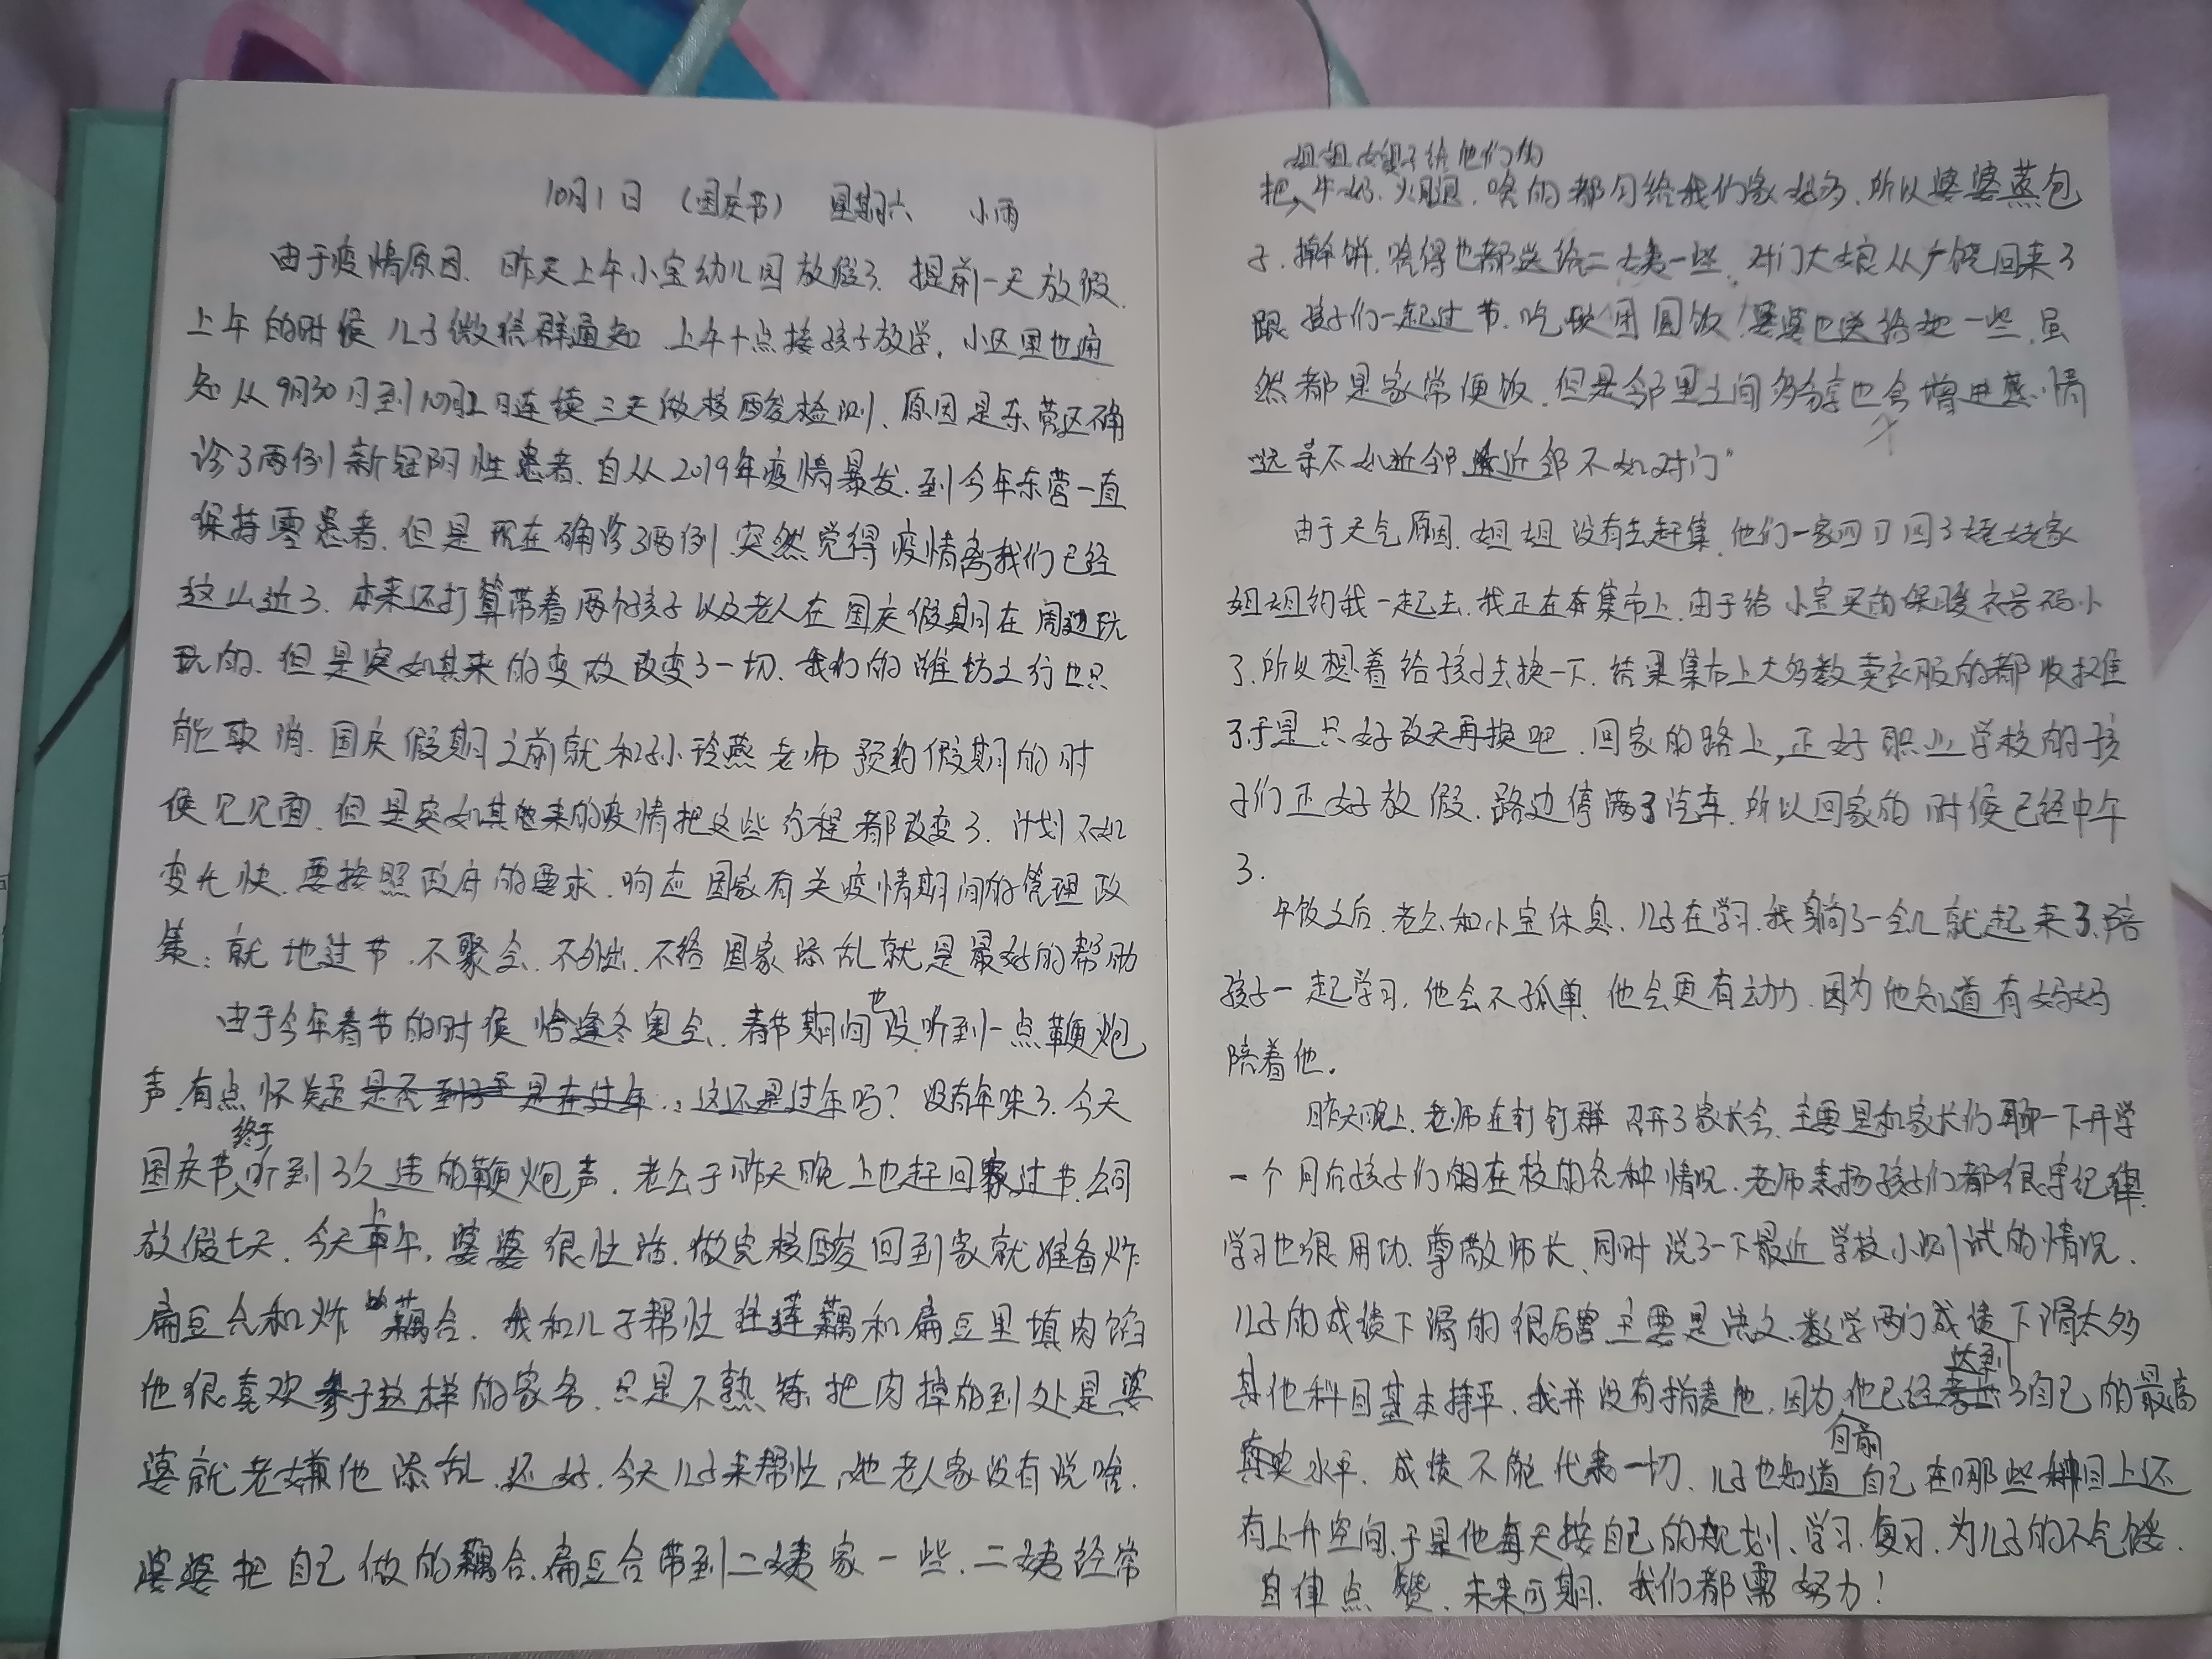 10月1日（国庆节） 星期六 小雨
由于疫情原因、昨天上午小宝幼儿园放假了、提前一天放假.
上午的时候儿子微信群通知 上午十点接孩子放学，小区里也通
知从9月30日到10月2日连续三天做核酸检测、原因是东营区确
诊了两例新冠阳性患者.自从2019年疫情暴发.到今年东营一直
保持零患者.但是现在确诊了两例.突然觉得疫情离我们已经
这么近了.本来还打算带着两个孩子以及老人在国庆假期间在周边玩
玩的.但是突如其来的变故改变了一切.我们的潍坊之行也只
能取消.国庆假期之前就和孙玲燕老师预约假期的时
候见见面.但是突如其来的疫情把这些行程都改变了.计划不如
变化快.要按照政府的要求.响应国家有关疫情期间的管理政
策：就地过节.不聚会.不外出.不给国家添乱就是最好的帮助
由于今年春节的时候恰逢冬奥会、春节期间也没听到一点鞭炮
声.有点怀疑是否到了是在过年.：这还是过年吗？没有年味了.今天
国庆节终于听到了久违的鞭炮声.老公于昨天晚上也赶回家过节.公司
放假七天.今天上午，婆婆很忙活.做完核酸回到家就准备炸
扁豆合和炸藕合.我和儿子帮忙往莲藕和扁豆里填肉馅
他很喜欢参于这样的家务.只是不熟练.把肉掉的到处是婆
婆就老嫌他添乱.还好.今天儿子来帮忙，她老人家没有说啥.
婆婆把自己做的藕合.扁豆合带到二姨家一些.二姨经常
把姐姐嫂子给他们的牛奶.火腿.啥的都匀给我们家好多.所以婆婆蒸包
子.擀饼.啥得也都送给二姨一些.对门大娘从广饶回来了
跟孩子们一起过节.吃团圆饭，婆婆也送给她一些.虽
然都是家常便饭.但是邻里之间多分享也会增进感情
“远亲不如近邻近邻不如对门”
由于天气原因.姐姐没有去赶集.他们一家四口回了姥姥家
姐姐约我一起去.我正在集市上.由于给小宝买的保暖衣号码小
了.所以想着给孩子去换一下.结果集市上大多数卖衣服的都收摊
了于是只好改天再换吧.回家的路上,正好职业学校的孩
子们正好放假.路边停满了汽车.所以回家的时候已经中午
了.
午饭之后.老公和小宝休息.儿子在学习.我躺了一会儿就起来了.陪
孩子一起学习.他会不孤单.他会更有动力.因为他知道有妈妈
陪着他.
昨天晚上.老师在钉钉群召开了家长会.主要是和家长们聊一下开学
一个月后孩子们在校的各种情况.老师表扬孩子们都很守纪律
学习也很用功.尊敬师长.同时说了一下最近学校小测试的情况.
儿子的成绩下滑的很厉害主要是语文.数学两门成绩下滑太多
其他科目基本持平.我并没有指责他.因为他已经达到了自己的最高
真实水平.成绩不能代表一切.儿子也知道目前自己在哪些科目上还
有上升空间.于是他每天按自己的规划、学习.复习.为儿子的不气馁.
自律点赞.未来可期.我们都需努力！